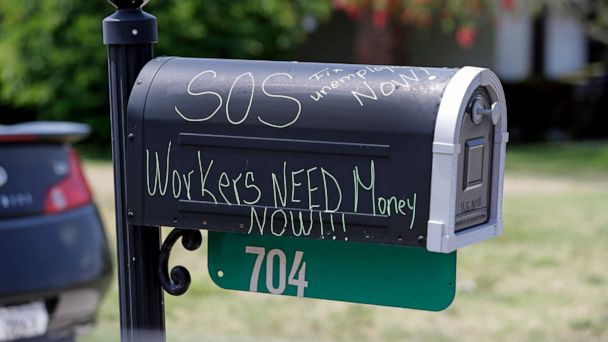 SOS
Fix
unemploym
NOW!!
Workers NEED Money
NOW!!!
U.S. MAIL
704